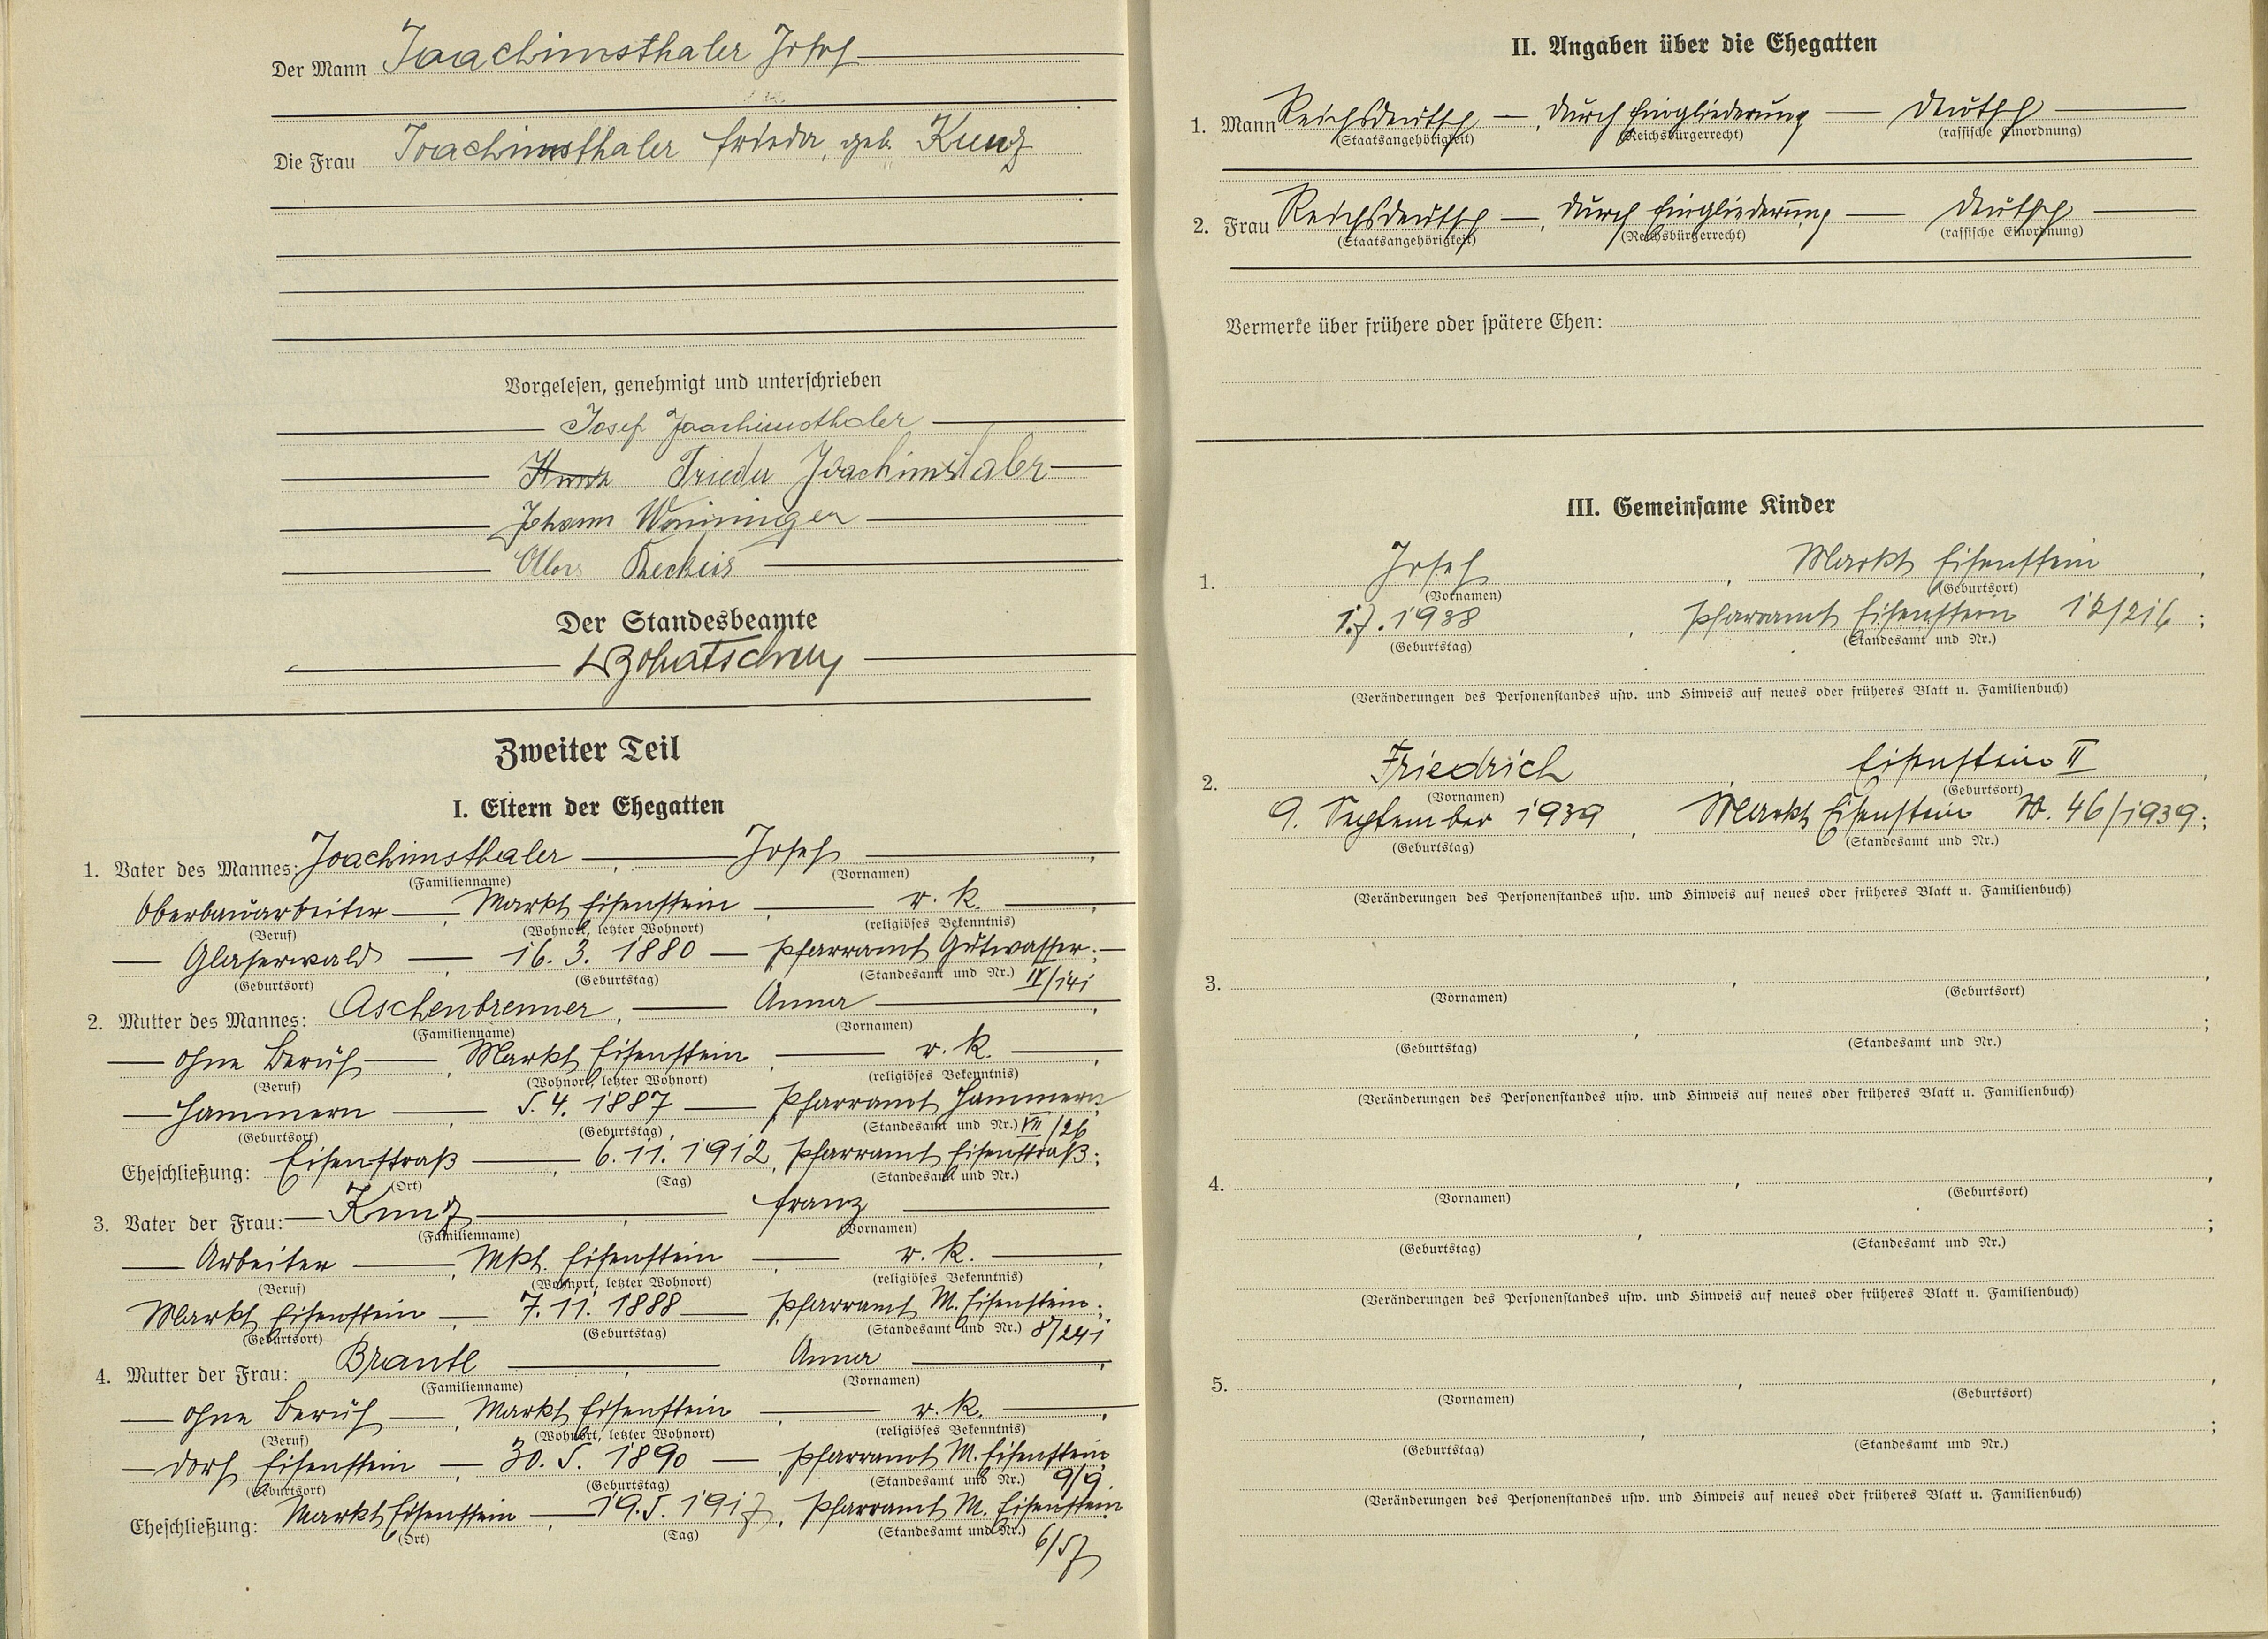 Der Mann Joachimsthaler Josef
Die Frau Joachimsthaler Frieda, geb. Kunz
Vorgelesen, genehmigt und unterschrieben
Josef Joachimsthaler
Frieda Joachimstaler
Johann
Alois
Der Standesbeamte
Zweiter Teil
I. Eltern der Ehegatten
1. Vater des Mannes: Joachimsthaler, Josef,
(Familienname) (Vornamen)
Oberbauarbeiter, Markt Eisenstein, r. k.,
(Beruf) (Wohnort, letzter Wohnort) (religiöses Bekenntnis)
Glaserwald, 16. 3. 1880 Pfarramt Gutwasser;
(Geburtsort) (Geburtstag) (Standesamt und Nr.) IV/141
2. Mutter des Mannes: Aschenbrenner, Anna,
(Familienname) (Vornamen)
ohne Beruf, Markt Eisenstein, r. k.,
(Beruf) (Wohnort, letzter Wohnort) (religiöses Bekenntnis)
Hammern, 5. 4. 1887 Pfarramt Hammern
(Geburtsort) (Geburtstag) (Standesamt und Nr.) VII/26
Eheschließung: Eisenstraß, 6. 11. 1912, Pfarramt Eisenstraß;
(Ort) (Tag) (Standesamt und Nr.)
3. Vater der Frau: Kunz, Franz
(Familienname) (Vornamen)
Arbeiter, Mkt. Eisenstein, r. k.,
(Beruf) (Wohnort, letzter Wohnort) (religiöses Bekenntnis)
Markt Eisenstein, 7. 11. 1888 Pfarramt M. Eisenstein;
(Geburtsort) (Geburtstag) (Standesamt und Nr.) 8/241
4. Mutter der Frau: Brantl, Anna,
(Familienname) (Vornamen)
ohne Beruf, Markt Eisenstein, r. k.,
(Beruf) (Wohnort, letzter Wohnort) (religiöses Bekenntnis)
Dorf Eisenstein, 30. 5. 1890 Pfarramt M. Eisenstein
(Geburtsort) (Geburtstag) (Standesamt und Nr.) 9/9.
Eheschließung: Markt Eisenstein, 19. 5. 1917, Pfarramt M. Eisenstein
(Ort) (Tag) (Standesamt und Nr.)
6/57
II. Angaben über die Ehegatten
1. Mann Reichsdeutsch, durch Eingliederung deutsch
(Staatsangehörigkeit) (Reichsbürgerrecht) (rassische Einordnung)
2. Frau Reichsdeutsch, durch Eingliederung deutsch
(Staatsangehörigkeit) (Reichsbürgerrecht) (rassische Einordnung)
Vermerke über frühere oder spätere Ehen:
III. Gemeinsame Kinder
1. Josef, Markt Eisenstein,
(Vornamen) (Geburtsort)
1. 7. 1938, Pfarramt Eisenstein 12/216;
(Geburtstag) (Standesamt und Nr.)
(Veränderungen des Personenstandes usw. und Hinweis auf neues oder früheres Blatt u. Familienbuch)
2. Friedrich, Eisenstein II,
(Vornamen) (Geburtsort)
9. September 1939, Markt Eisenstein Nr. 46/1939;
(Geburtstag) (Standesamt und Nr.)
(Veränderungen des Personenstandes usw. und Hinweis auf neues oder früheres Blatt u. Familienbuch)
3. , ,
(Vornamen) (Geburtsort)
, ;
(Geburtstag) (Standesamt und Nr.)
(Veränderungen des Personenstandes usw. und Hinweis auf neues oder früheres Blatt u. Familienbuch)
4. , ,
(Vornamen) (Geburtsort)
, ;
(Geburtstag) (Standesamt und Nr.)
(Veränderungen des Personenstandes usw. und Hinweis auf neues oder früheres Blatt u. Familienbuch)
5. , ,
(Vornamen) (Geburtsort)
, ;
(Geburtstag) (Standesamt und Nr.)
(Veränderungen des Personenstandes usw. und Hinweis auf neues oder früheres Blatt u. Familienbuch)